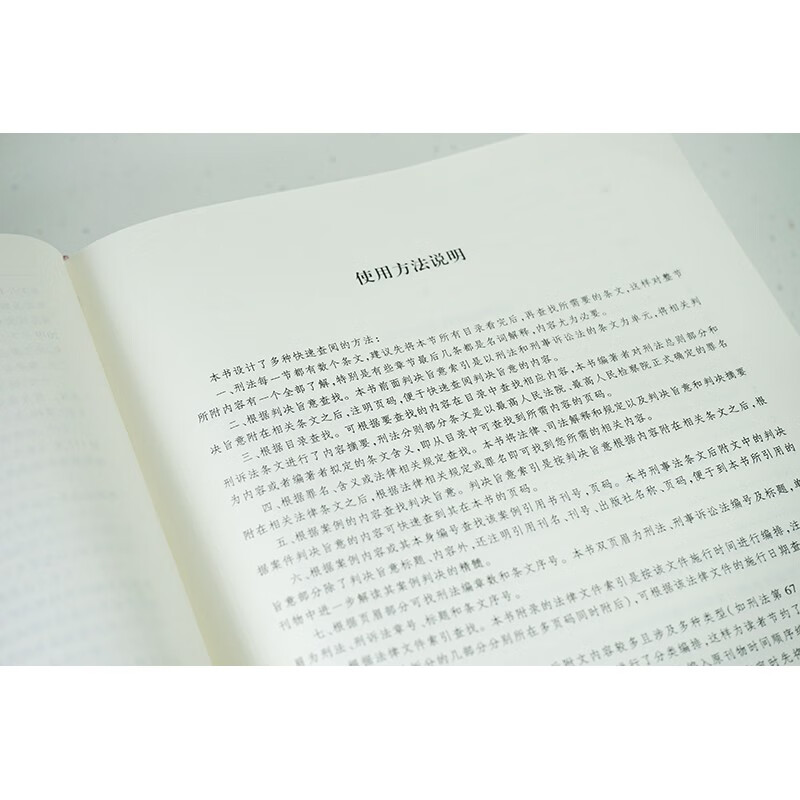 使用方法说明
本书设计了多种快速查阅的方法：
一、刑法每一节都有数个条文，建议先将本节所有目录看完后，再查找所需要的条文，这样对整节
所附内容有一个全部了解，特别是有些章节最后几条都是名词解释，内容尤为必要。
二、根据判决旨意查找。本书前面判决旨意索引是以刑法和刑事诉讼法的条文为单元，将相关判
决旨意附在相关条文之后，注明页码，便于快速查阅判决旨意的内容。
三、根据目录查找。可根据要查找的内容在目录中查找相应内容，本书编著者对刑法总则部分和
刑诉法条文进行了内容摘要，刑法分则部分条文是以最高人民法院、最高人民检察院正式确定的罪名
为内容或者编著者拟定的条文含义，即从目录中可查找到所需内容的页码。
四、根据罪名、含义或法律相关规定查找。本书将法律、司法解释和规定以及判决旨意和判决摘要
附在相关法律条文之后，根据法律相关规定或罪名即可找到您所需的相关内容。
五、根据案例的内容查找判决旨意。判决旨意索引是按判决旨意根据内容附在相关条文之后，根
据案件判决旨意的内容可快速查到其在本书的页码。
六、根据案例内容或其本身编号查找该案例引用书刊号，页码。本书刑事法条文后附文中的判决
旨意部分除了判决旨意标题、内容外，还注明引用刊名、刊号、出版社名称、页码，便于到本书所引用的
刊物中进一步解读其案例判决的精髓。
七、根据页眉部分可找刑法编章数和条文序号。本书双页眉为刑法、刑事诉讼法编号及标题，单
眉为刑法、刑诉法章号、标题和条文序号。
根据法律文件索引查找。本书附录的法律文件索引是按该文件施行时间进行编排，注
部分的几部分分别所在多页码同时附后），可根据该法律文件的施行日期查
后附文内容较多且涉及多种类型（如刑法第67
进行了分类编排，这样为读者节约了
入原刊物时间顺序